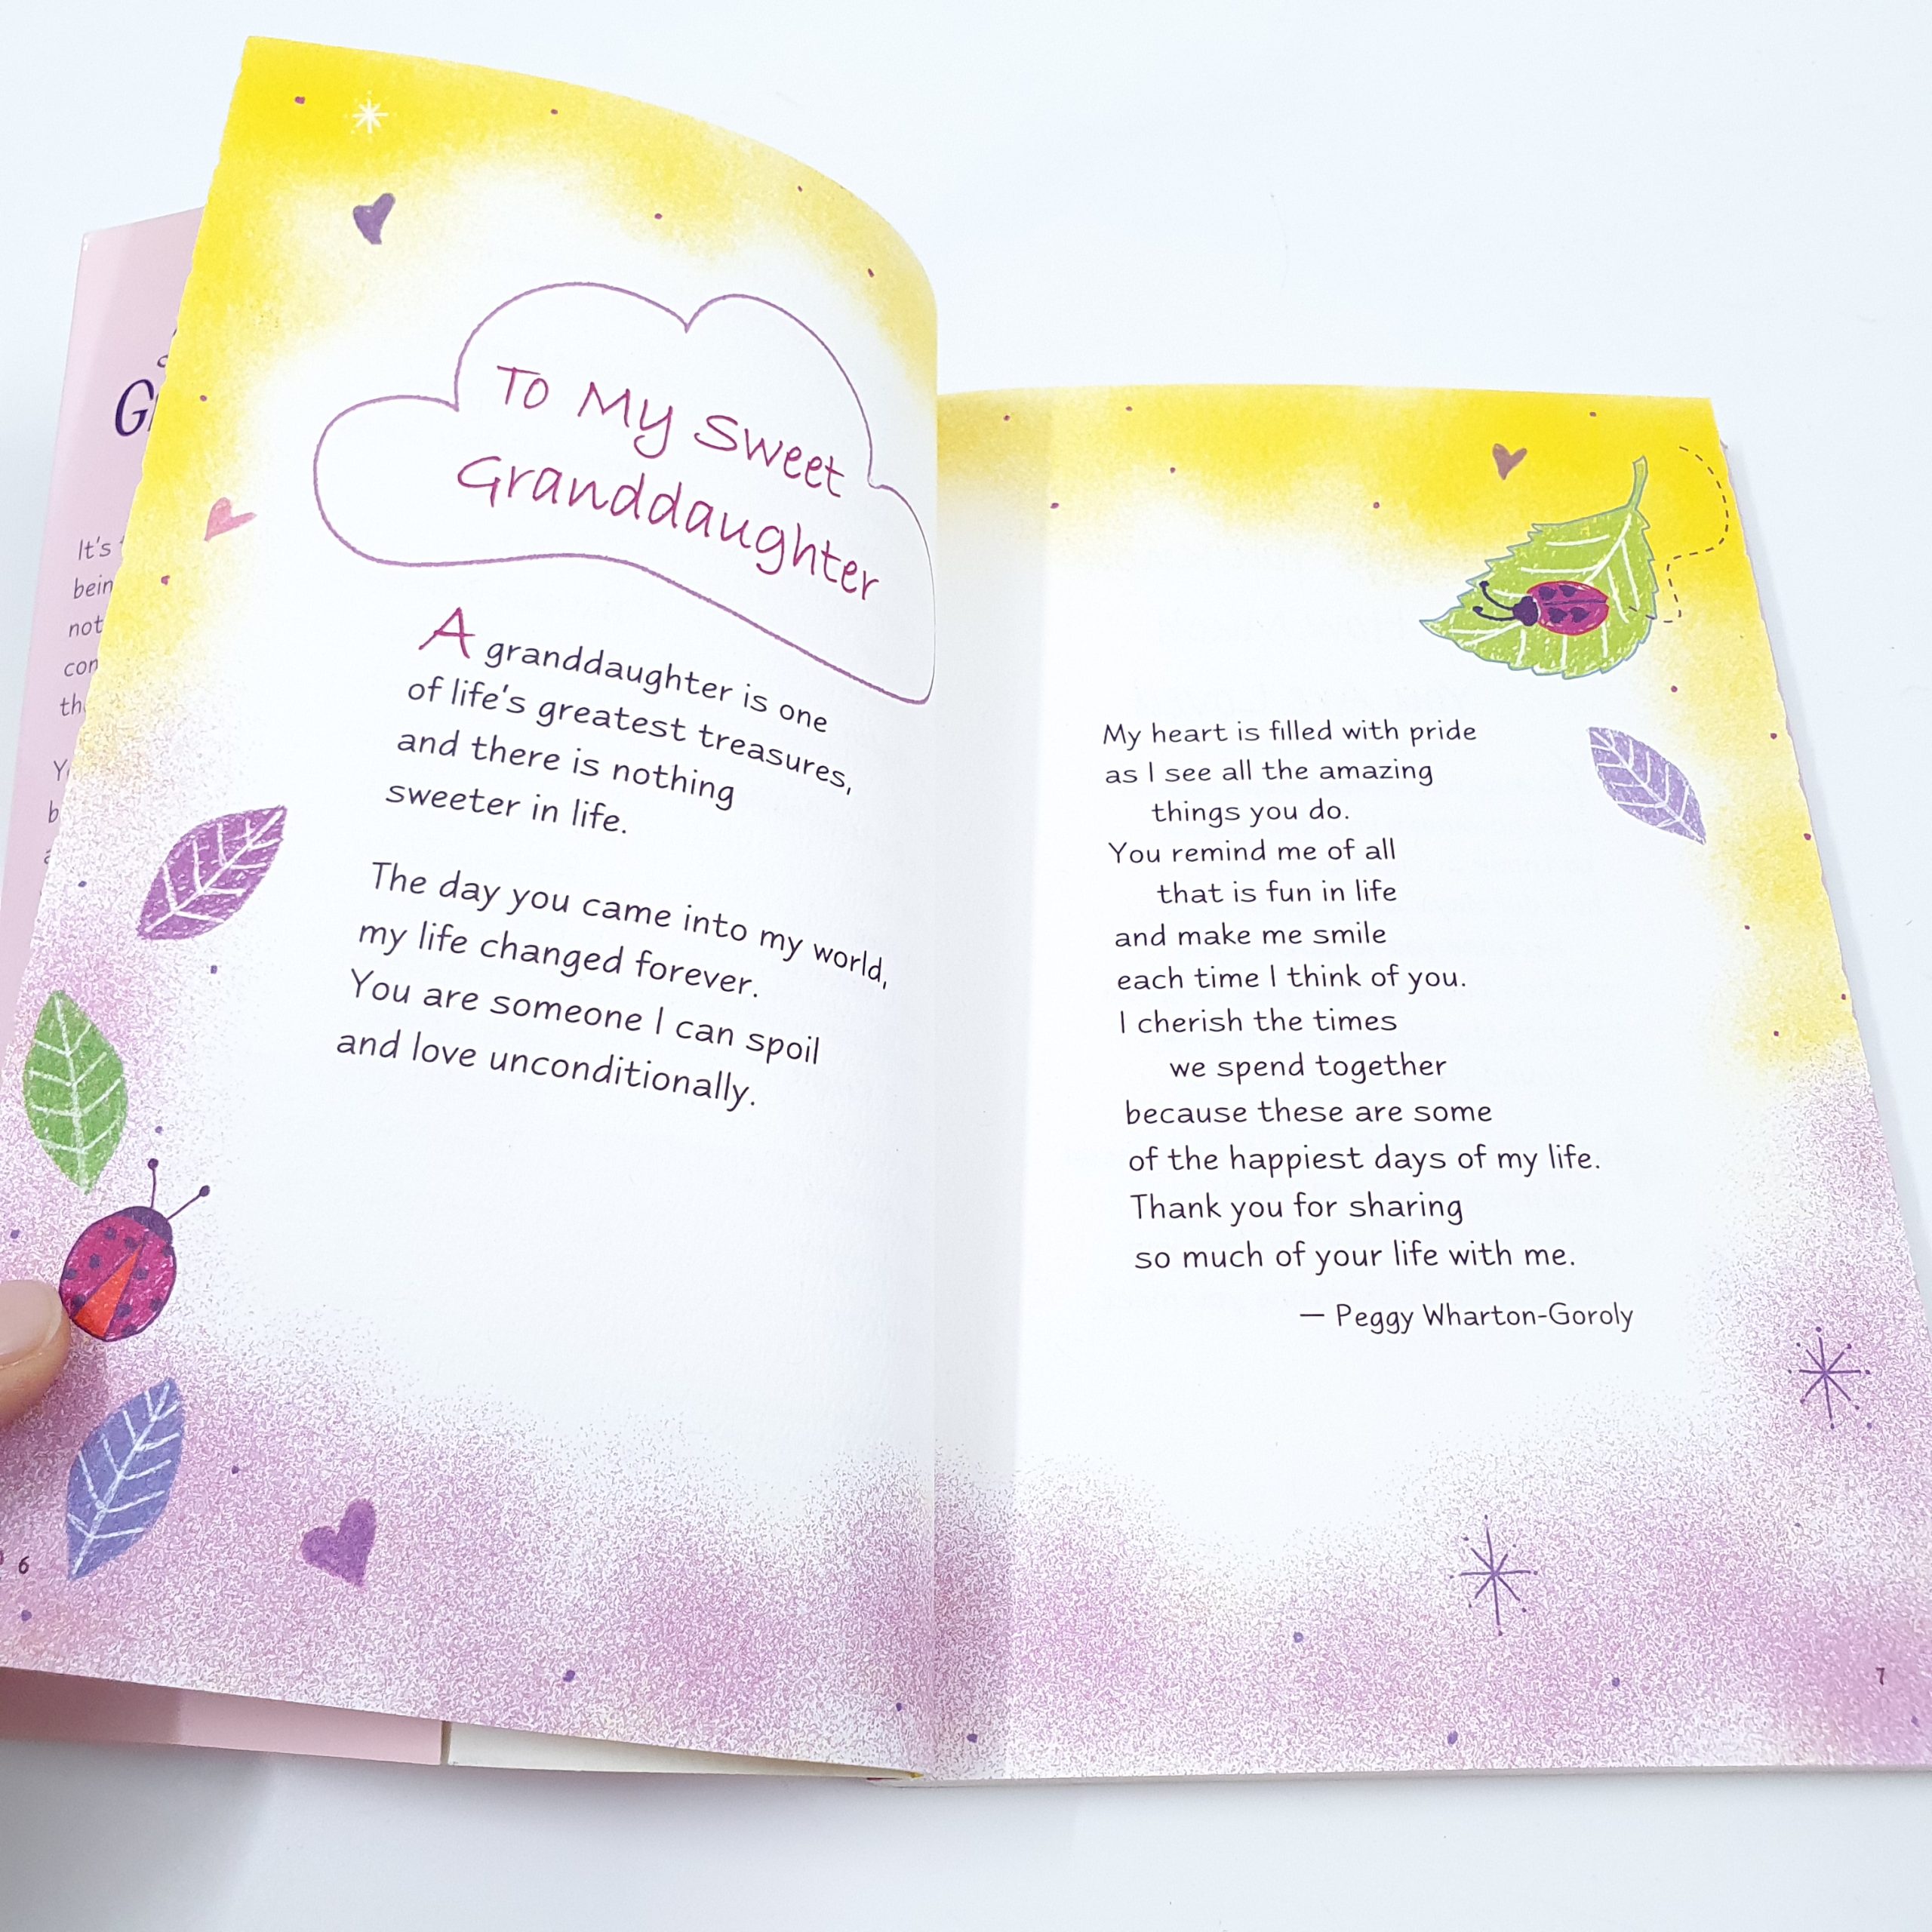 It's
not
To My Sweet
Granddaughter
A granddaughter is one
of life's greatest treasures,
and there is nothing
sweeter in life.
The day you came into my world,
my life changed forever.
You are someone I can spoil
and love unconditionally.
6
My heart is filled with pride
as I see all the amazing
things you do.
You remind me of all
that is fun in life
and make me smile
each time I think of you.
I cherish the times
we spend together
because these are some
of the happiest days of my life.
Thank you for sharing
so much of your life with me.
— Peggy Wharton-Goroly
7